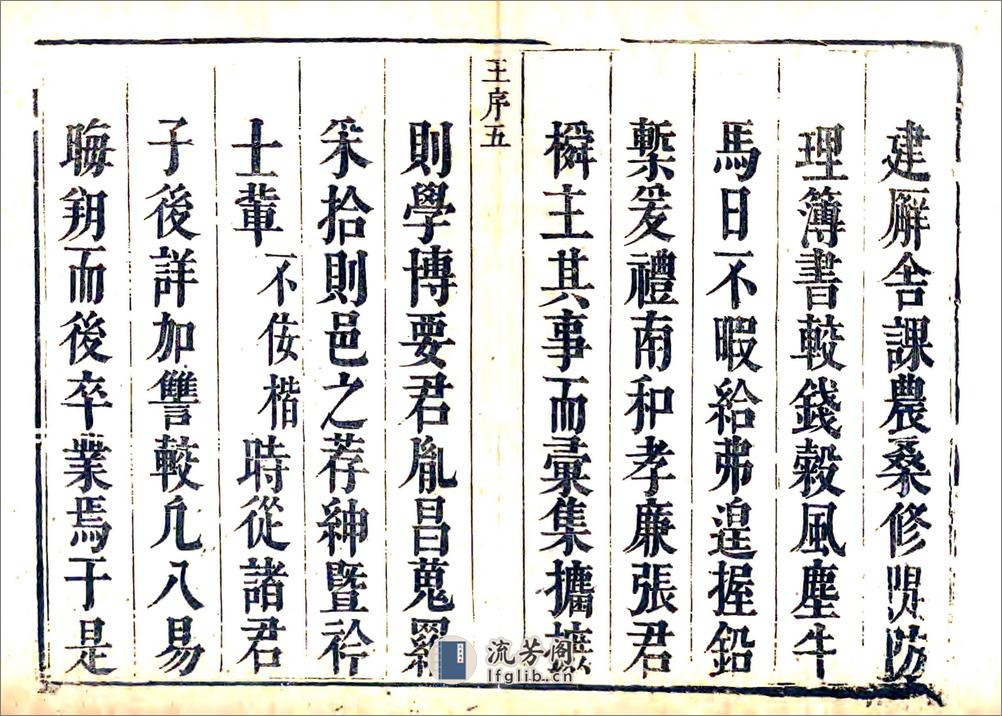 建廨舍課農桑修隄防
理簿書較錢穀風塵牛
馬日不暇給弗遑握鉛
槧爰禮南和孝廉張君
檙主其事而彙集攟摭
王序五
則學博要君胤昌蒐羅
采拾則邑之荐紳暨衿
士輩不佞楷時從諸君
子後詳加讐較凡八易
晦朔而後卒業焉于是
流芳阁
lfglib.cn